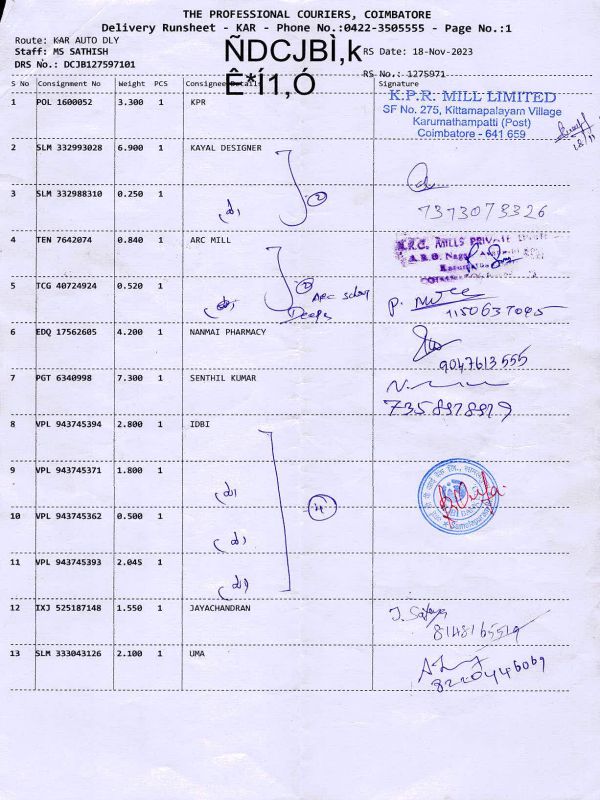 THE PROFESSIONAL COURIERS, COIMBATORE
Delivery Runsheet - KAR - Phone No.:0422-3505555 - Page No.:1
Route: KAR AUTO DLY
Staff: MS SATHISH
DRS No.: DCJB127597101
ÑDCJBÌ,k
Ê*Í1,Ó
RS Date: 18-Nov-2023
RS No.: 1275971
S No Consignment No Weight PCS Consignee Details Signature
1 POL 1600052 3.300 1 KPR
K.P.R. MILL LIMITED
SF No. 275, Kittamapalayam Village
Karumathampatti (Post)
Coimbatore - 641 659
2 SLM 332993028 6.900 1 KAYAL DESIGNER
3 SLM 332988310 0.250 1
(d) 2
7373073326
4 TEN 7642074 0.840 1 ARC MILL
MILLS PRIVATE
5 TCG 40724924 0.520 1
(d) 2
6 EDQ 17562605 4.200 1 NANMAI PHARMACY
9047613555
7 PGT 6340998 7.300 1 SENTHIL KUMAR
8 VPL 943745394 2.800 1 IDBI
9 VPL 943745371 1.800 1
(d)
10 VPL 943745362 0.500 1
(d)
11 VPL 943745393 2.045 1
(d)
12 IXJ 525187148 1.550 1 JAYACHANDRAN
13 SLM 333043126 2.100 1 UMA
8220446069